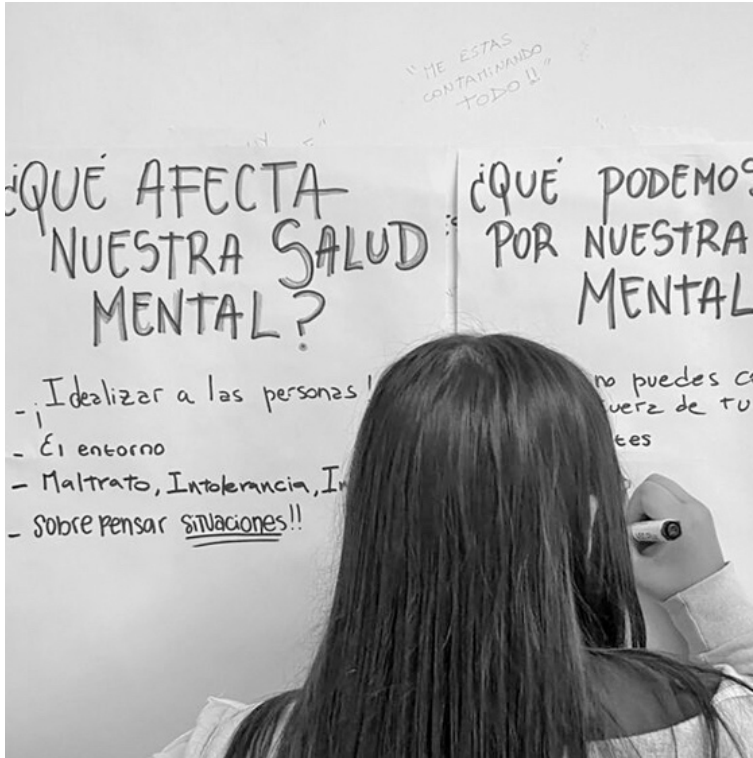 "ME ESTAS
CONTAMINANDO
TODO!!"
¿QUÉ AFECTA
NUESTRA SALUD
MENTAL?
- ¡Idealizar a las personas!
- El entorno
- Maltrato, Intolerancia,
- Sobre pensar situaciones!!
¿QUÉ PODEMOS
POR NUESTRA
MENTAL
no puedes
de tu